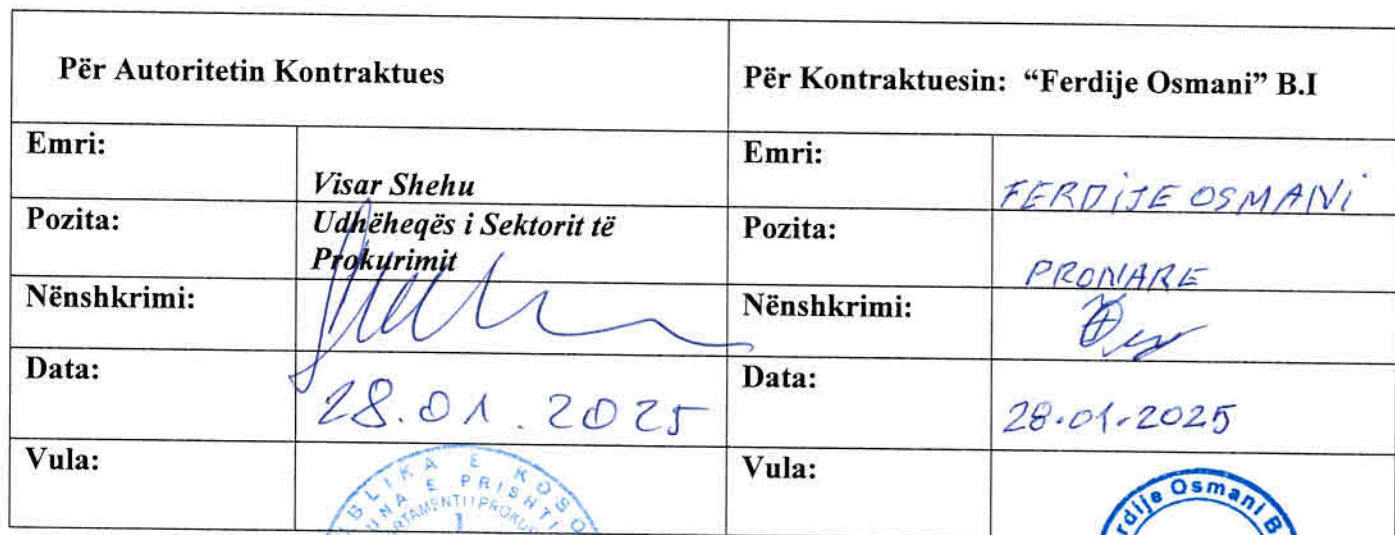 Për Autoritetin Kontraktues
Për Kontraktuesin: “Ferdije Osmani” B.I
Emri:
Visar Shehu
Emri:
FERDIJE OSMANI
Pozita:
Udhëheqës i Sektorit të
Prokurimit
Pozita:
PRONARE
Nënshkrimi:
Nënshkrimi:
Data:
28.01.2025
Data:
28.01.2025
Vula:
Vula:
Osmani